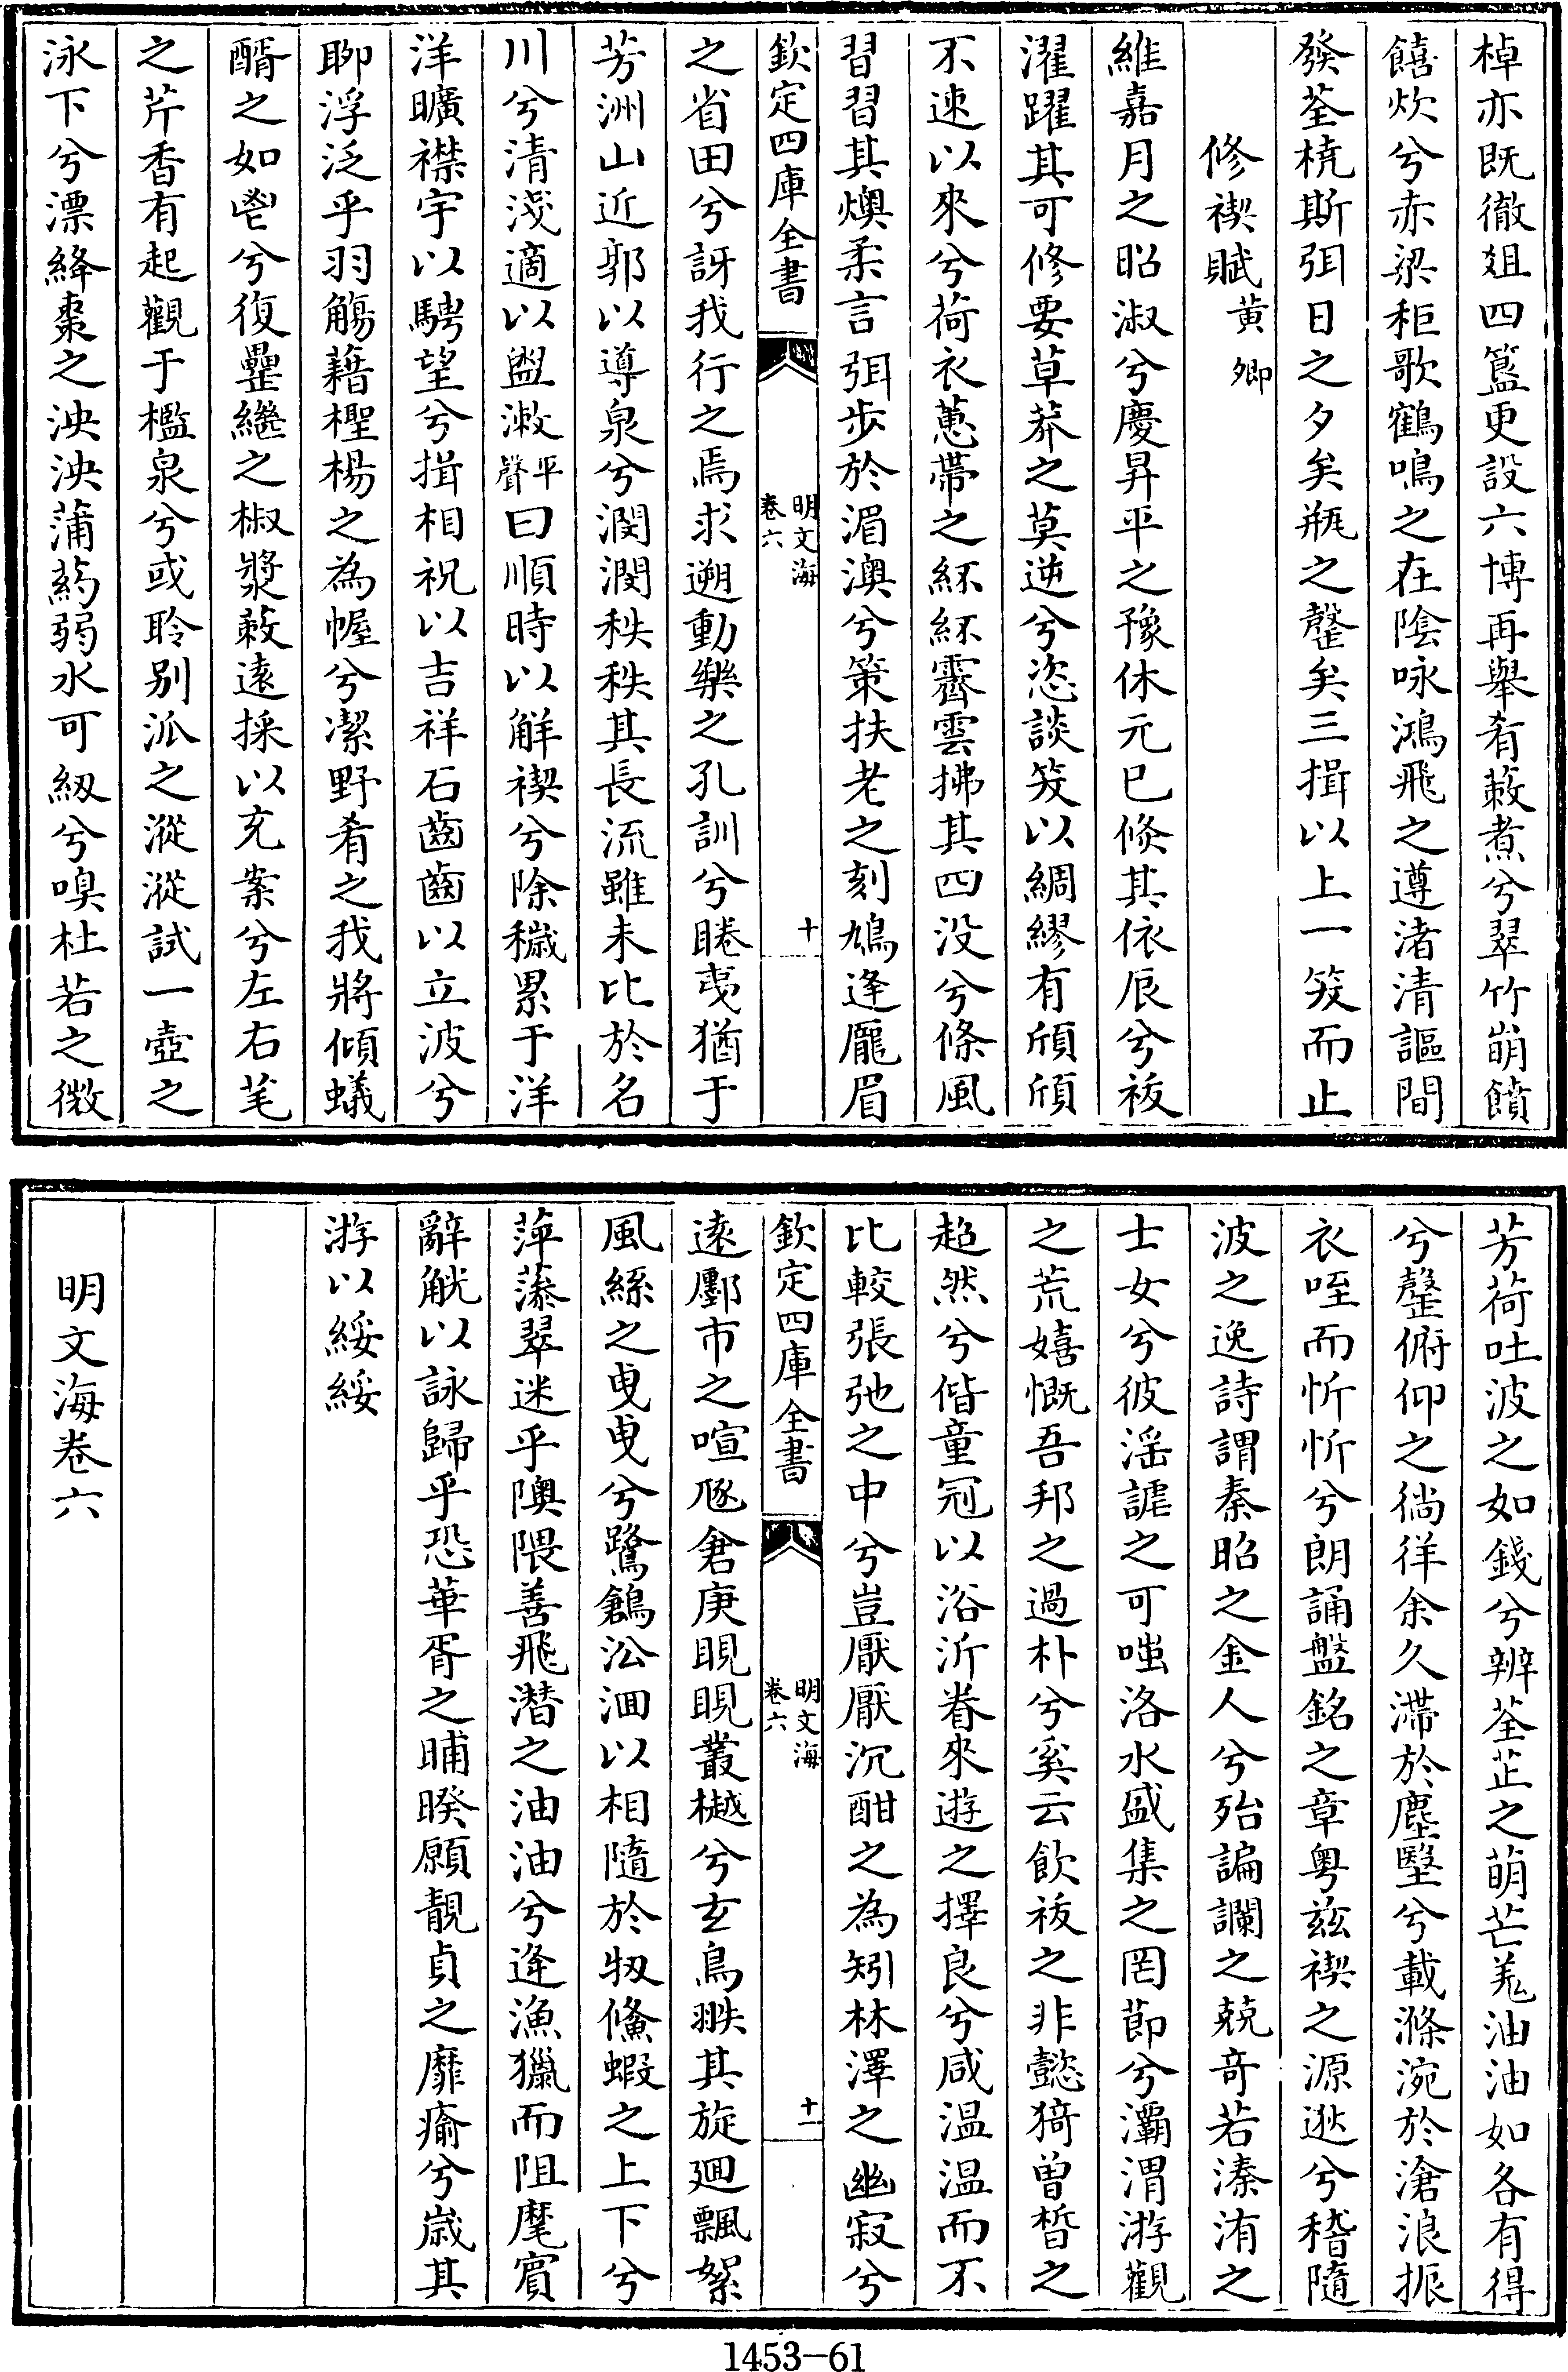 棹亦既徹爼四簋更設六博再舉肴蔌煮兮翠竹萌饙
饎炊兮赤梁秬歌鶴鳴之在陰咏鴻飛之遵渚清謳間
發荃橈斯弭日之夕矣瓶之罄矣三揖以上一笑而止
修禊賦 黄卿
維嘉月之昭淑兮慶昇平之豫休元巳倏其依辰兮祓
濯躍其可修要草莽之莫逆兮恣談笑以綢繆有頎頎
不速以來兮荷衣蕙帶之紑紑霽雲拂其四没兮條風
習習其燠柔言弭步於湄澳兮策扶老之刻鳩逢龎眉
欽定四庫全書
明文海
卷六
十
之省田兮訝我行之焉求遡動樂之孔訓兮睠夷猶于
芳洲山近郭以導泉兮濶濶秩秩其長流雖未比於名
川兮清淺適以盥漱平聲曰順時以觧禊兮除穢累于洋
洋曠襟宇以騁望兮揖相祝以吉祥石齒齒以立波兮
聊浮泛乎羽觴藉檉楊之為幄兮潔野肴之我將傾蟻
醑之如鬯兮復罍繼之椒漿蔌遠採以充案兮左右芼
之芹香有起觀于檻泉兮或聆别泒之漎漎試一壺之
泳下兮漂絳棗之泱泱蒲葯弱水可紉兮嗅杜若之微
芳荷吐波之如錢兮辨荃芷之萌芒羗油油如各有得
兮罄俯仰之徜徉余久滯於塵壂兮載滌涴於滄浪振
衣咥而忻忻兮朗誦盤銘之章粤兹禊之源逖兮稽隨
波之逸詩謂秦昭之金人兮殆諞讕之兢奇若溱洧之
士女兮彼滛謔之可嗤洛水盛集之罔節兮灞渭游觀
之荒嬉慨吾邦之過朴兮奚云飲祓之非懿猗曾晳之
超然兮偕童冠以浴沂眷來遊之擇良兮咸温温而不
比較張弛之中兮豈厭厭沉酣之為矧林澤之幽寂兮
欽定四庫全書
明文海
卷六
十一
遠鄽市之喧豗倉庚睍睍叢樾兮玄鳥翐其旋廻飄絮
風絲之曳曳兮鷺鶬沿洄以相隨於牣鯈蝦之上下兮
萍藻翠迷乎隩隈善飛潜之油油兮逢漁獵而阻麾賓
辭觥以詠歸乎恐華胥之晡暌願靚貞之靡瘉兮嵗其
游以綏綏
明文海卷六
1453-61